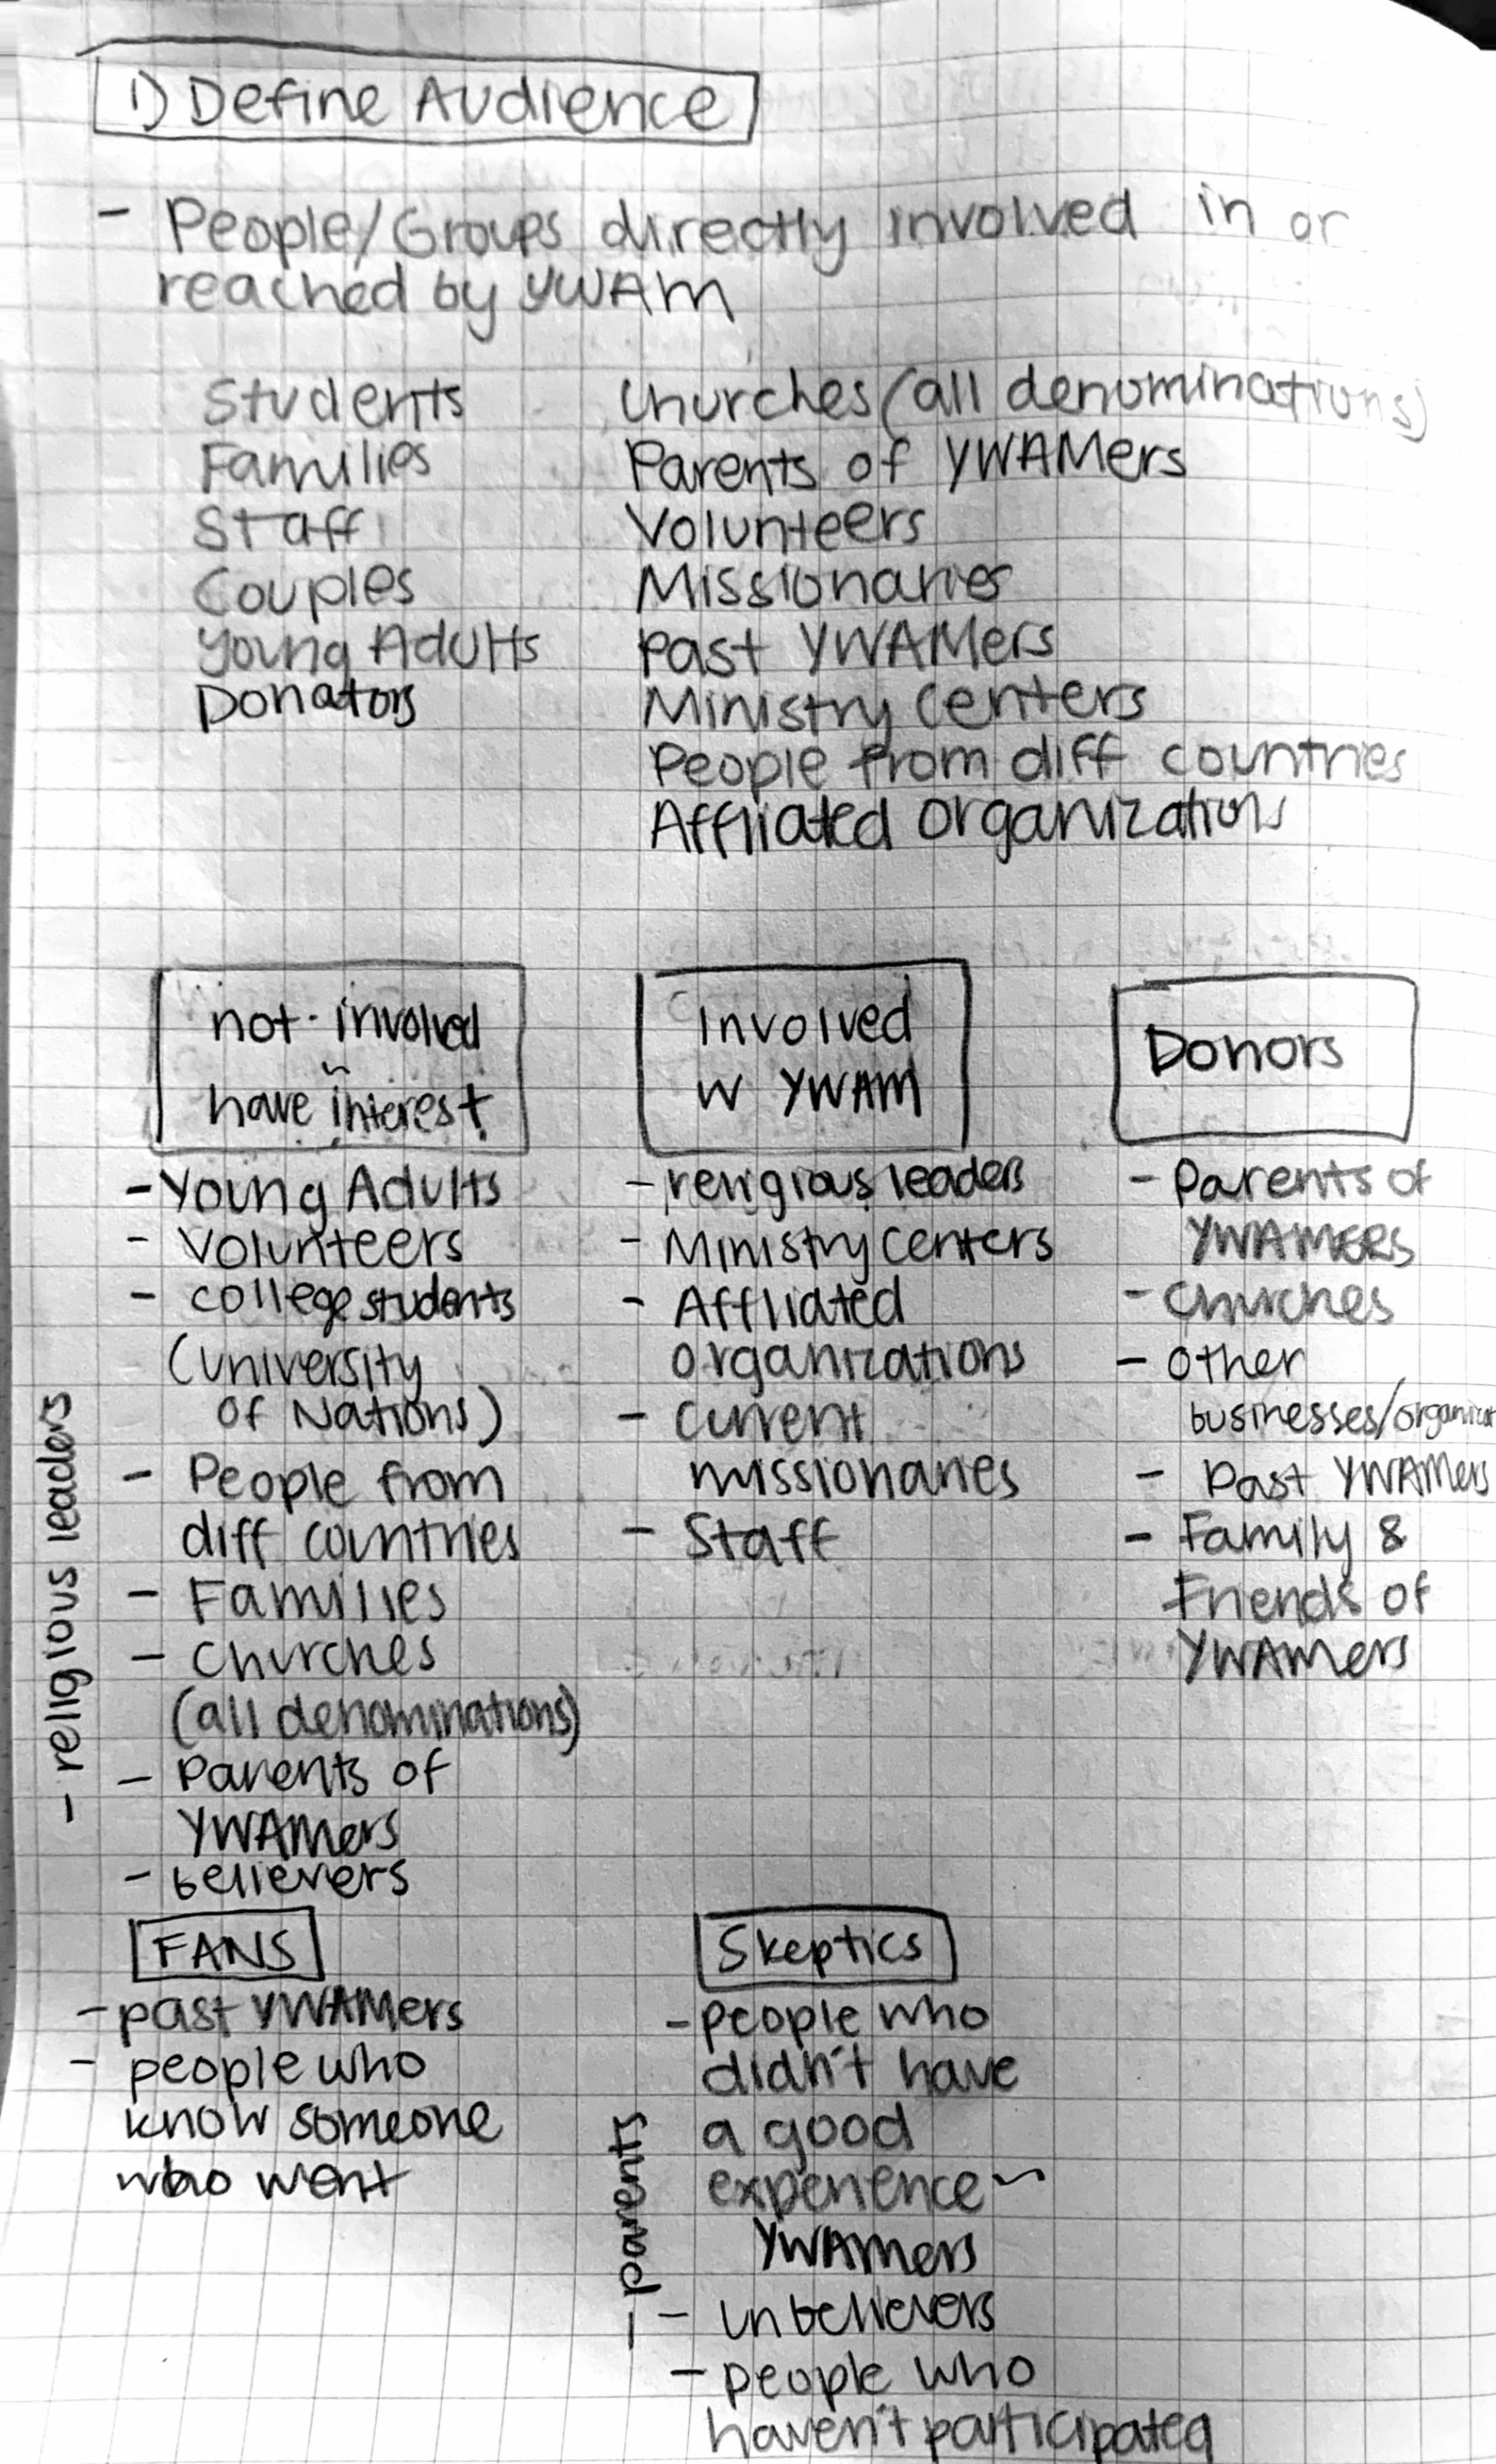 1) Define Audience
- People/Groups directly involved in or
reached by YWAM
Students
Families
Staff
Couples
Young Adults
Donators
Churches (all denominations)
Parents of YWAMers
Volunteers
Missionaries
Past YWAMers
Ministry Centers
People from diff countries
Affliated organizations
not-involved
have interest
- Young Adults
- Volunteers
- college students
(university
of Nations)
- People from
diff countries
- Families
- Churches
(all denominations)
- Parents of
YWAMers
- believers
- religious leaders
Involved
w YWAM
- religious leaders
- Ministry centers
- Affliated
organizations
- Current
missionaries
- Staff
Donors
- Parents of
YWAMERS
- Churches
- other
businesses/organizat
- Past YWAMers
- Family &
Friends of
YWAMers
FANS
- past YWAMers
- people who
know someone
who went
Skeptics
- people who
didn't have
a good
experience ~
YWAMers
- unbelievers
- people who
haven't participated
- parents